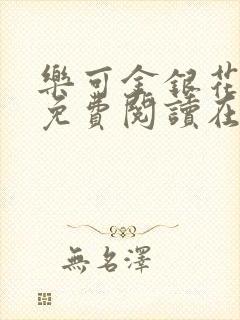 樂可金銀花
免費閱讀在
無名澤